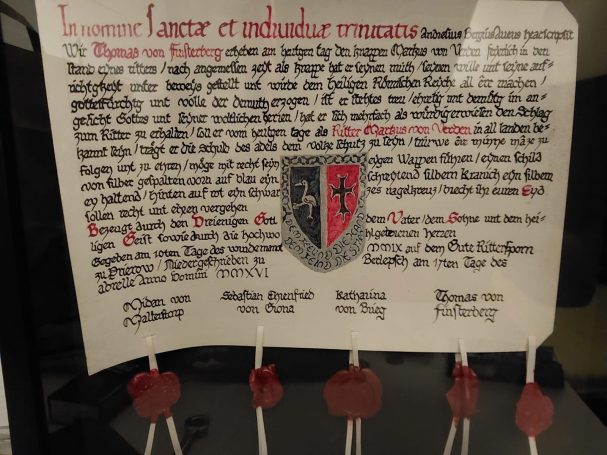 In nomine Sanctæ et individuæ trinitatis
Wir Thomas von Finsterberg erheben am heutgen tag den knappen Markus von Verden in den
stand eynes ritters / nach angemessen zeyt als knappe hat er seynen muth / seynen wille unt seyne auf-
richtgkeyt unter beweys gestellt unt würde dem heiligen Römischen Reyche all êre machen /
gottesfürchtig unt volle der demuth erzogen / ist er stehtes treu / ehrlig unt demütig im an-
gesicht Gottes unt seyner weltlichen herren / hat er sich mehrfach als würdig erwiesen den Schlag
zum Ritter zu erhalten / soll er vom heutgen tage als Ritter Markus von Verden in all landen be-
kannt seyn / trägt er die schuld des adels dem volke schutz zu seyn / minne mâze zu
folgen unt zu ehren / möge mit recht seyn eygen Wappen führen / eynen schild
von silber gespalten vorn auf blau eyn schreytend silbern Kranich eyn silbern
ey haltend / hinten auf rot eyn schwar zes nagelkreuz / mecht ihr euren Eyd
sollen recht unt ehren vergehen
Bezeugt durch den Dreienigen Gott dem Vater / dem Sohne unt dem hei-
ligen Geist sowie durch die hochwo hlgeborenen Herren
Gegeben am 10ten Tage des windemonat MMIX auf dem Gute Ritterhporn
zu Prierow / Niedergeschrieben zu Berlepsch am 17ten Tage des
abrelle Anno Domini MMXVI
Sebastian Ehrenfried
von Giona
Katharina
von Brieg
Thomas von
Finsterberg